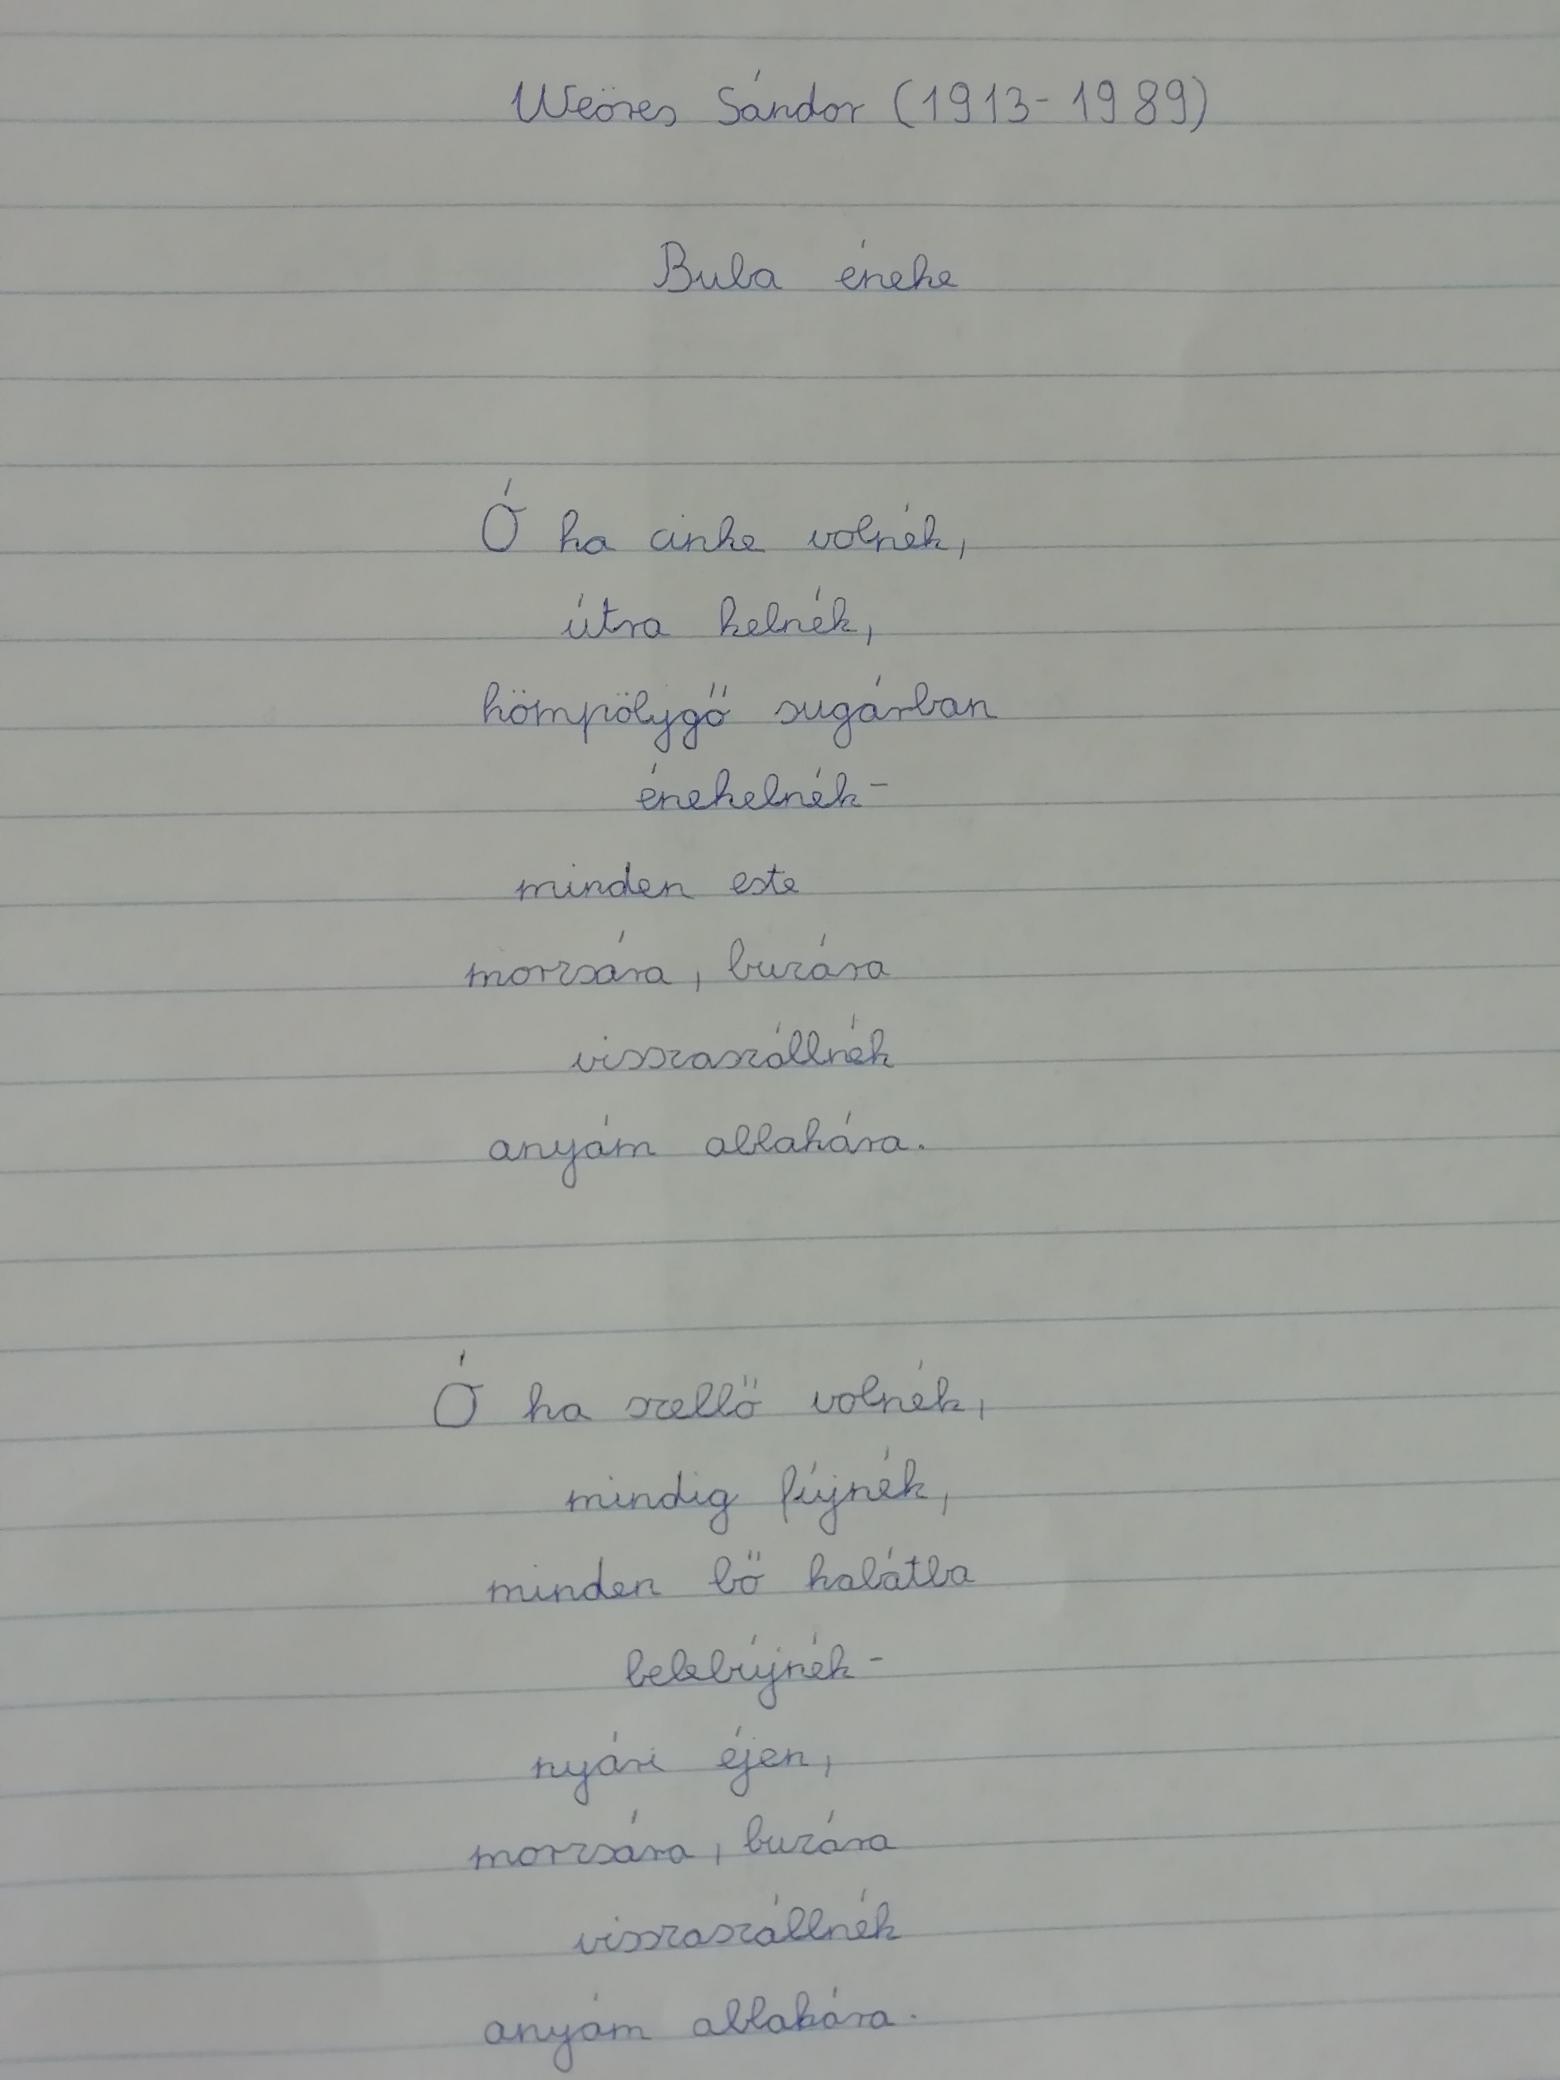 Weöres Sándor (1913-1989)
Buba éneke
Ó ha cinke volnék,
útra kelnék,
hömpölygő sugárban
énekelnék-
minden este
morzsára, buzára
visszaszállnék
anyám ablakára.
Ó ha szellő volnék,
mindig fújnék,
minden bő kabátba
belebújnék-
nyári éjen,
morzsára, buzára
visszaszállnék
anyám ablakára.